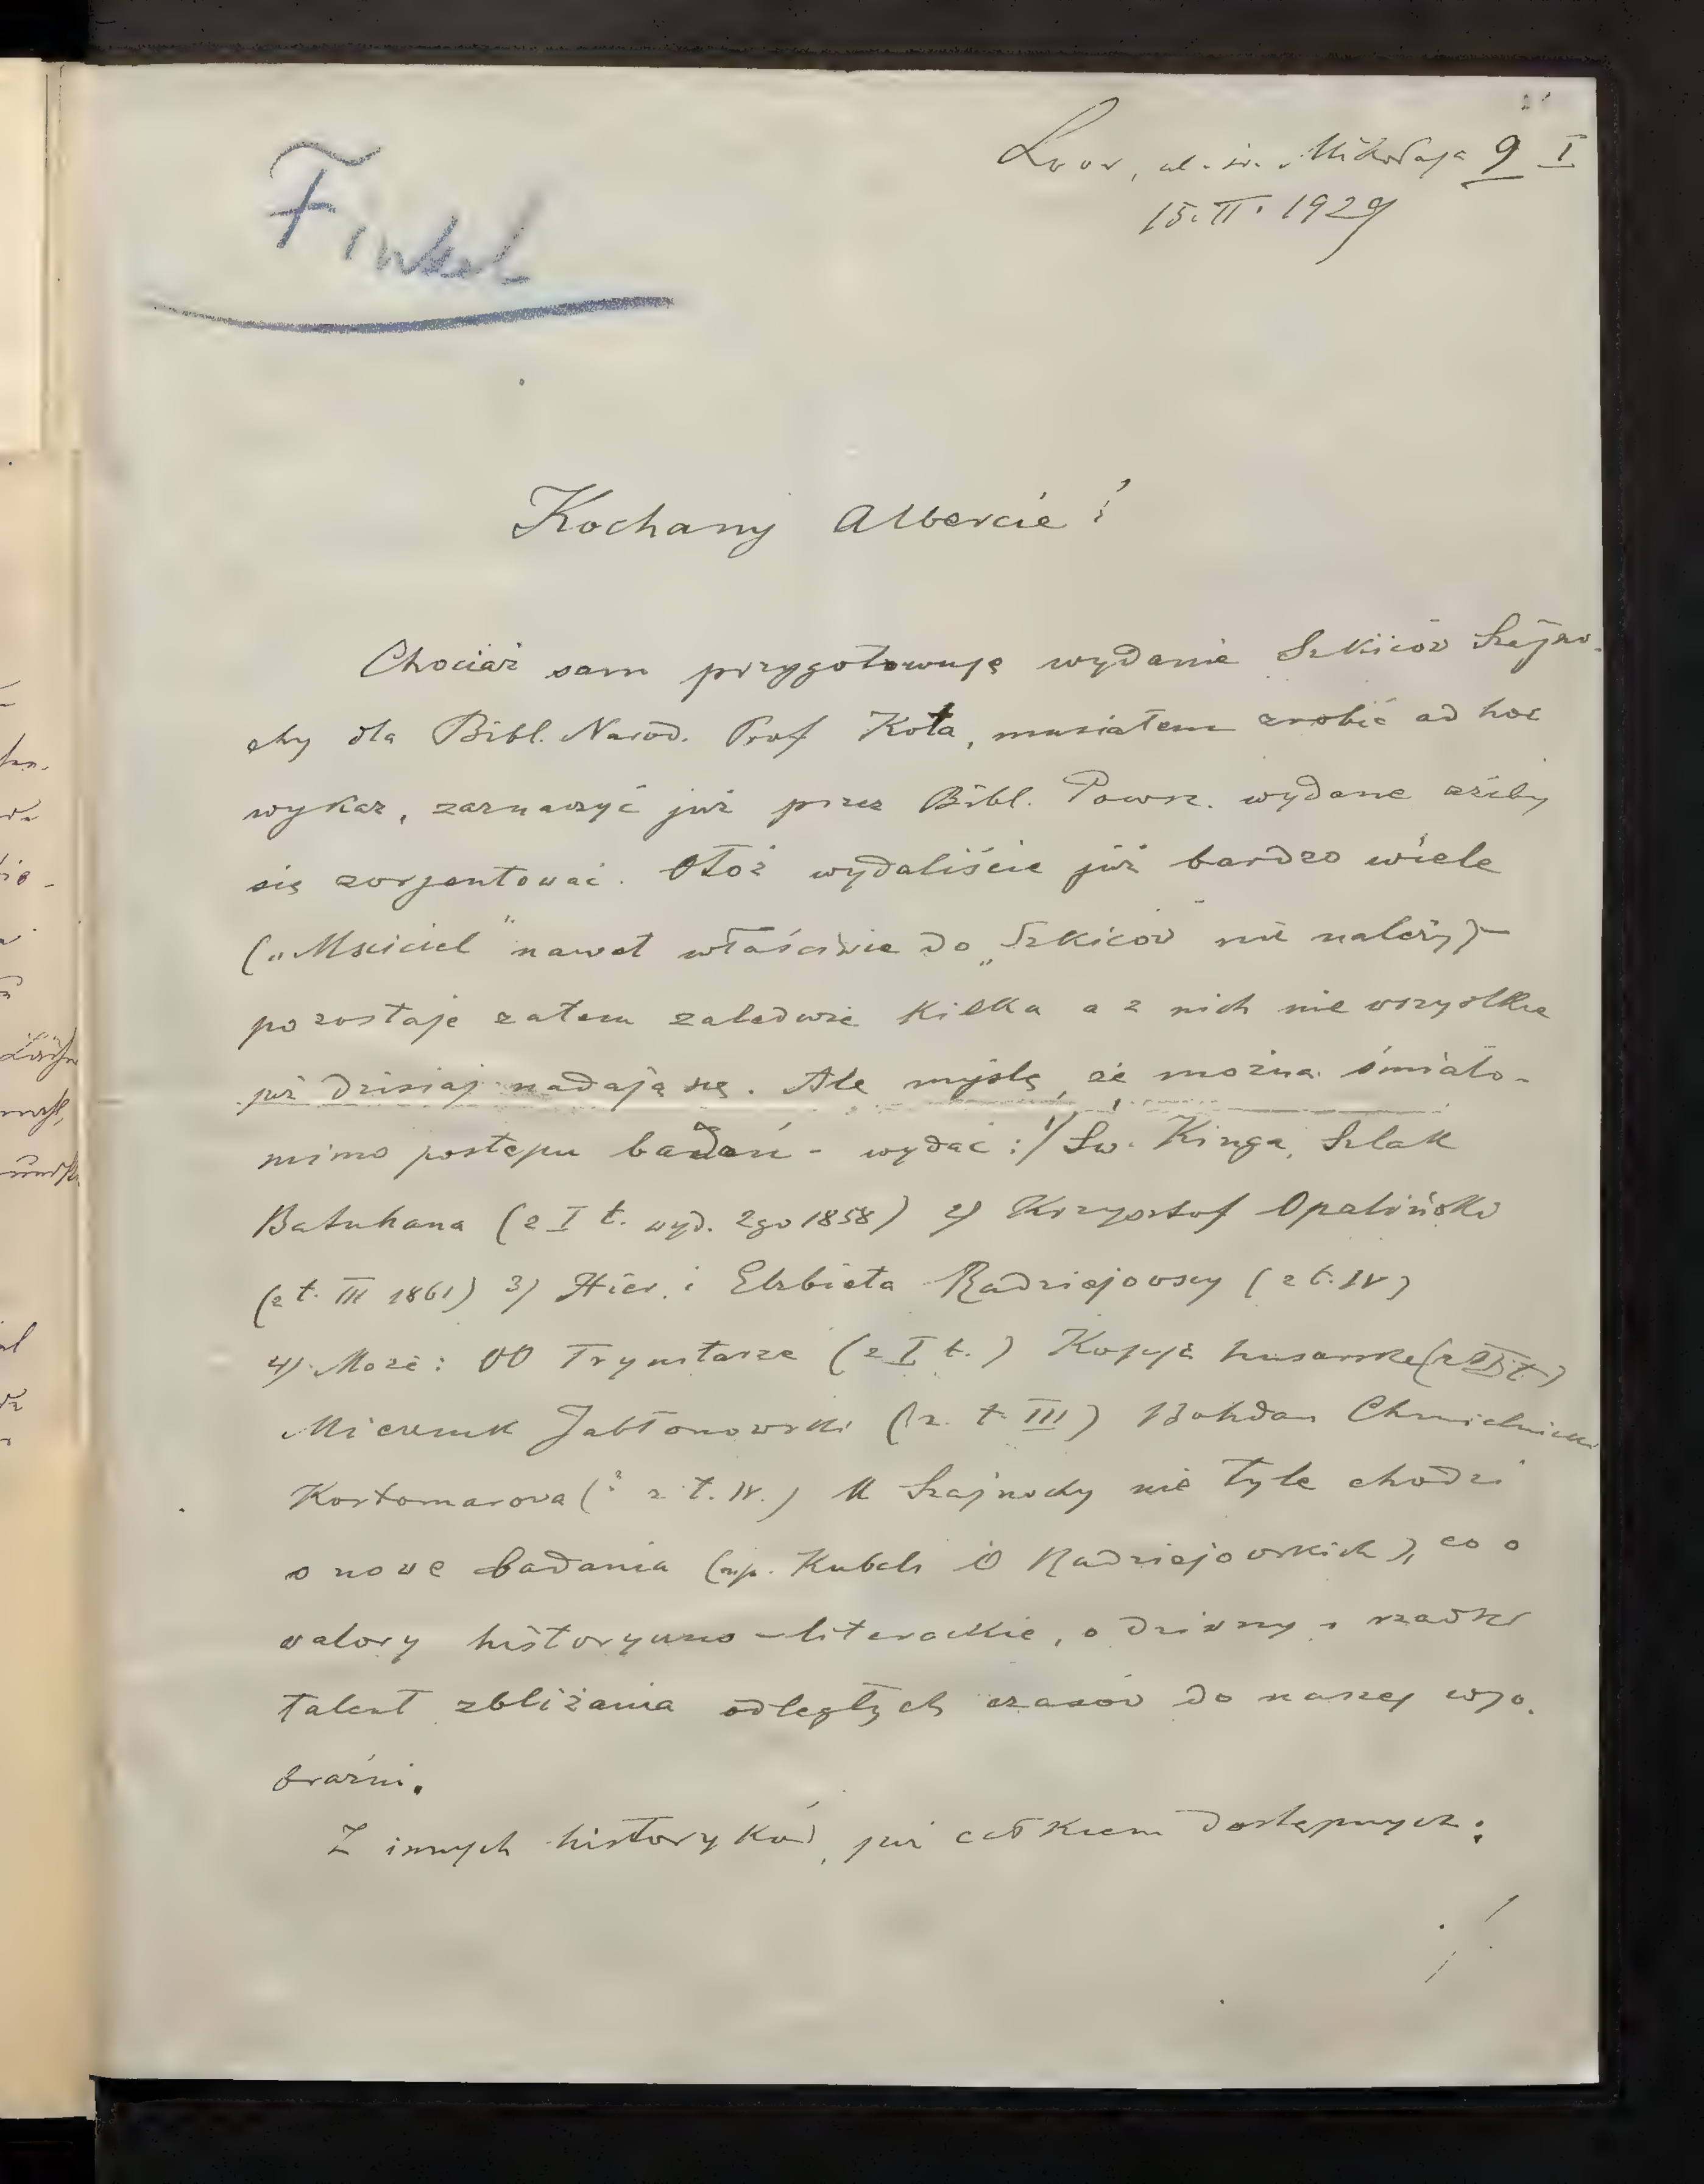 Lwow, ul. św. Mikołaja 9 I
15. II. 1929
Finkel
Kochany Albercie!
Chociaż sam przygotowuję wydanie Szkiców Szajno-
chy dla Bibl. Narod. Prof Kota, musiałem zrobić ad hoc
wykaz, zaznaczyć już przez Bibl. Powsz. wydane ażeby
się zorjentować. Otóż wydaliście już bardzo wiele
(„Mściciel" nawet właściwie do „Szkiców" nie należy) –
pozostaje zatem zaledwie kilka a z nich nie wszystkie
już dzisiaj nadają się. Ale myślę, że można śmiało -
mimo postępu badań - wydać: 1) Św. Kinga, Szlak
Batuhana (z I t. wyd. 2go 1858) 2) Krzysztof Opaliński
(z t. III 1861) 3) Hier. i Elżbieta Radziejowscy (z t. IV)
4) Może: OO Trynitarze (z I t.) Kopje husarskie (z t.)
Miecznik Jabłonowski (z. t. III) Bohdan Chmielnicki
Kostomarowa (? z t. IV.) U Szajnochy nie tyle chodzi
o nowe badania (np. Kubali O Radziejowskich), co o
walory historyczno-literackie, o dziwny i rzadki
talent zbliżania odległych czasów do naszej wyo-
braźni.
Z innych historyków, już całkiem dostępnych: